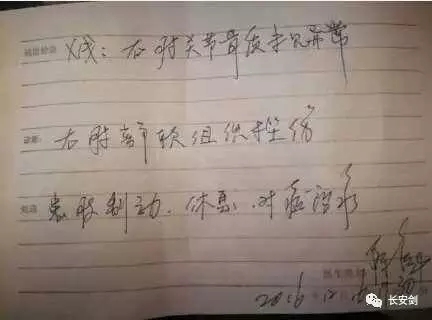 X线：右肘关节骨质未见异常
诊断：右肘部软组织挫伤
患肢制动、休息、对症治疗
医生
2016
长安剑